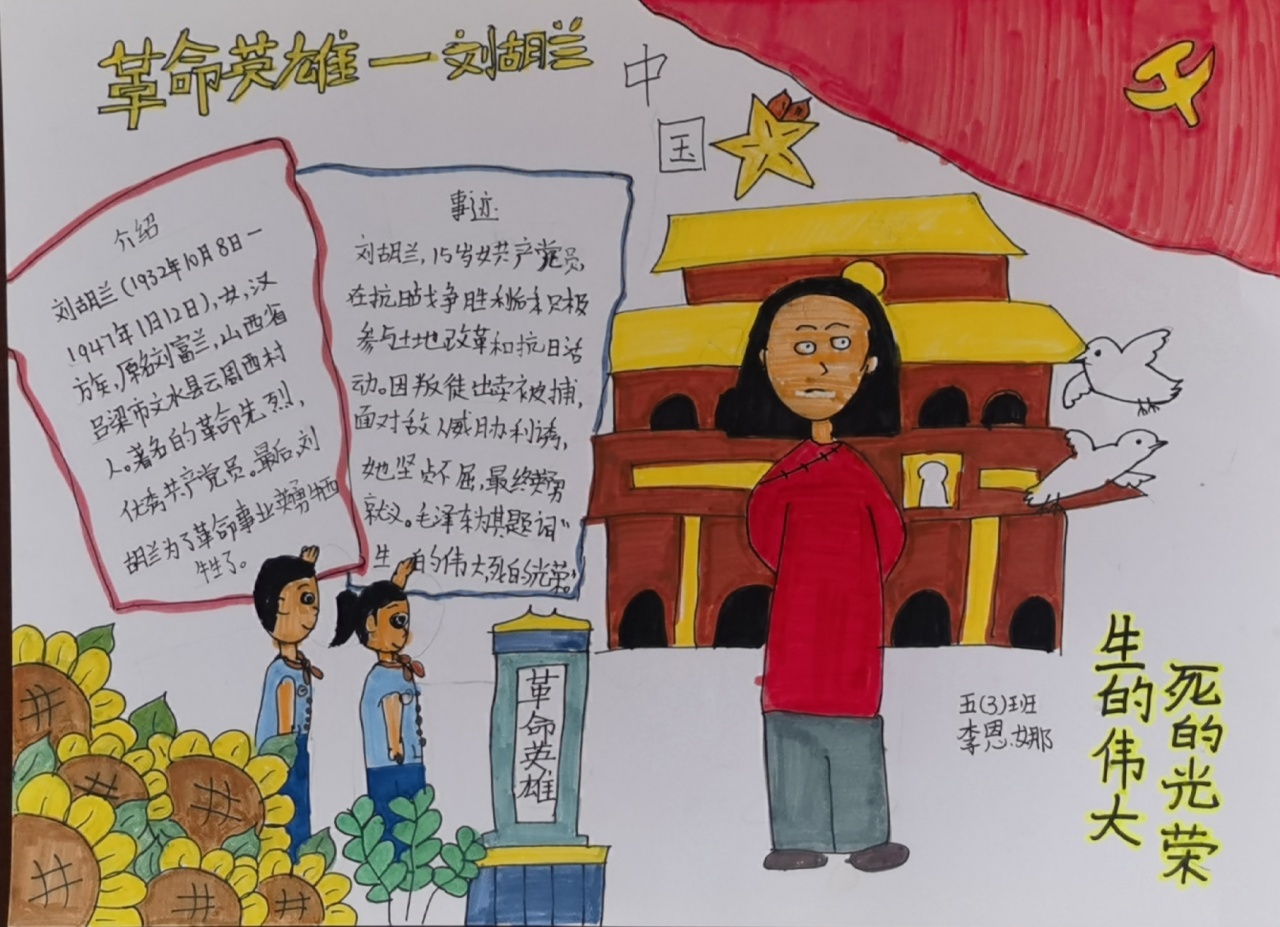 革命英雄—刘胡兰
中
国
介绍
刘胡兰(1932年10月8日一
1947年1月12日),女,汉
方矣,原名刘富兰,山西省
吕梁市文水县云周西村
人。著名的革命先烈,
优秀共产党员。最后,刘
胡兰为了革命事业英勇牺
牲了。
事迹
刘胡兰,15岁女共产党员,
在抗日战争胜利后积极
参与土地改革和抗日活
动。因叛徒出卖被捕,
面对敌人威胁利诱,
她坚贞不屈,最终英勇
就义。毛泽东为其题词“
生的伟大,死的光荣。”
革命英雄
五(3)班
李恩娜
生的伟大
死的光荣